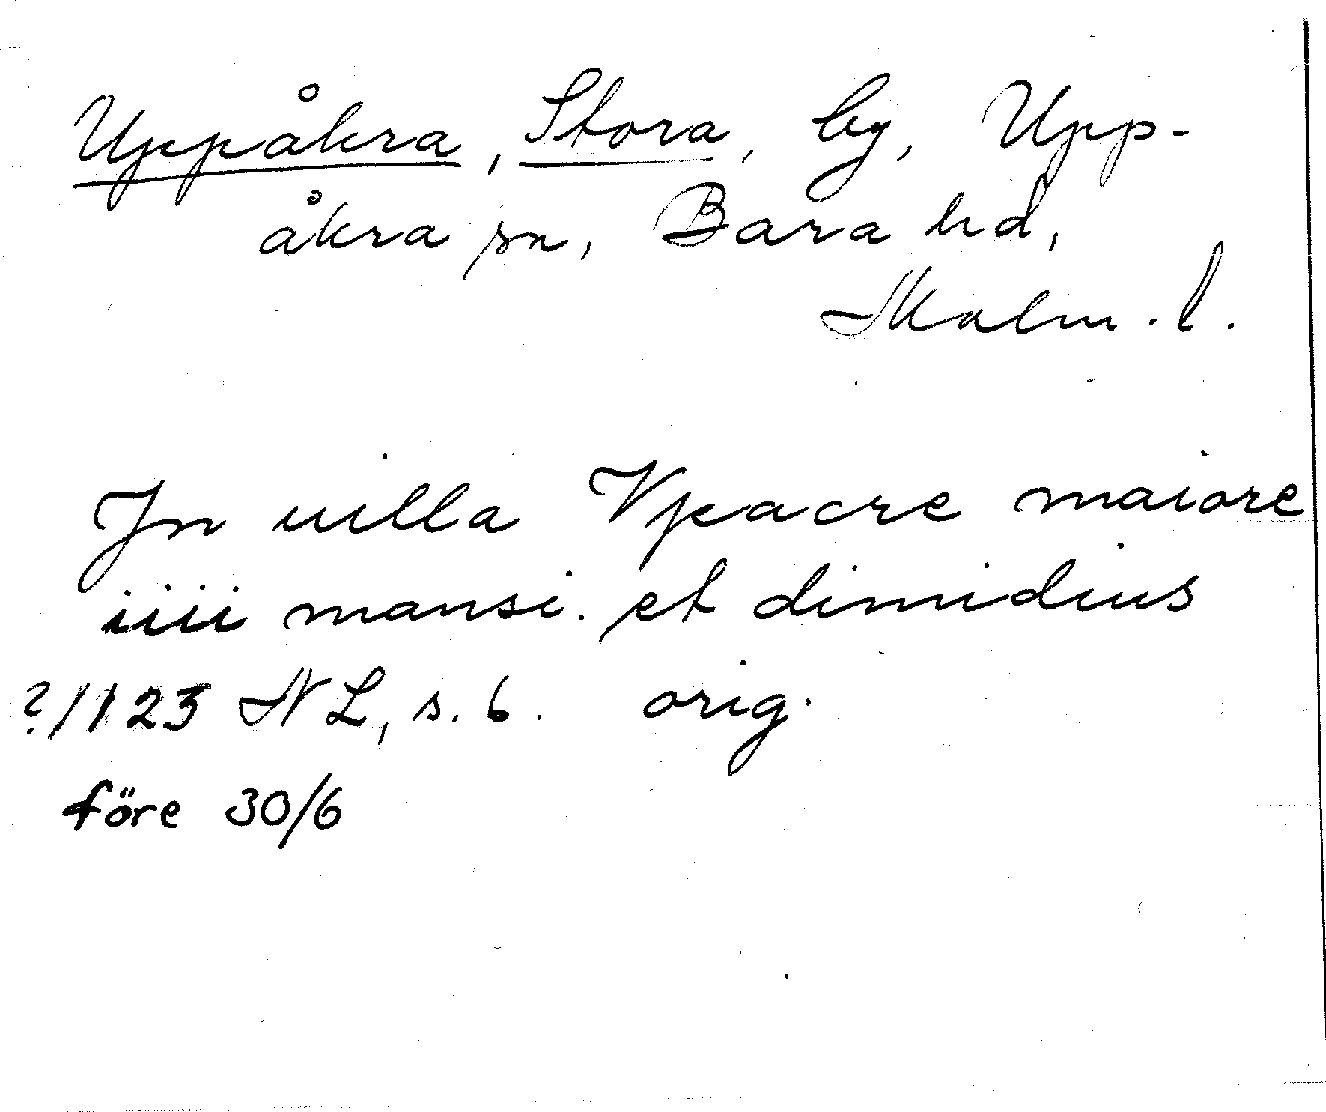 Uppåkra, Stora, by, Upp-
åkra sn, Bara hd,
Malm. l.
Jn uilla Vpacre maiore
iiii mansi. et dimidius
?/1123 NL, s. 6. orig.
före 30/6